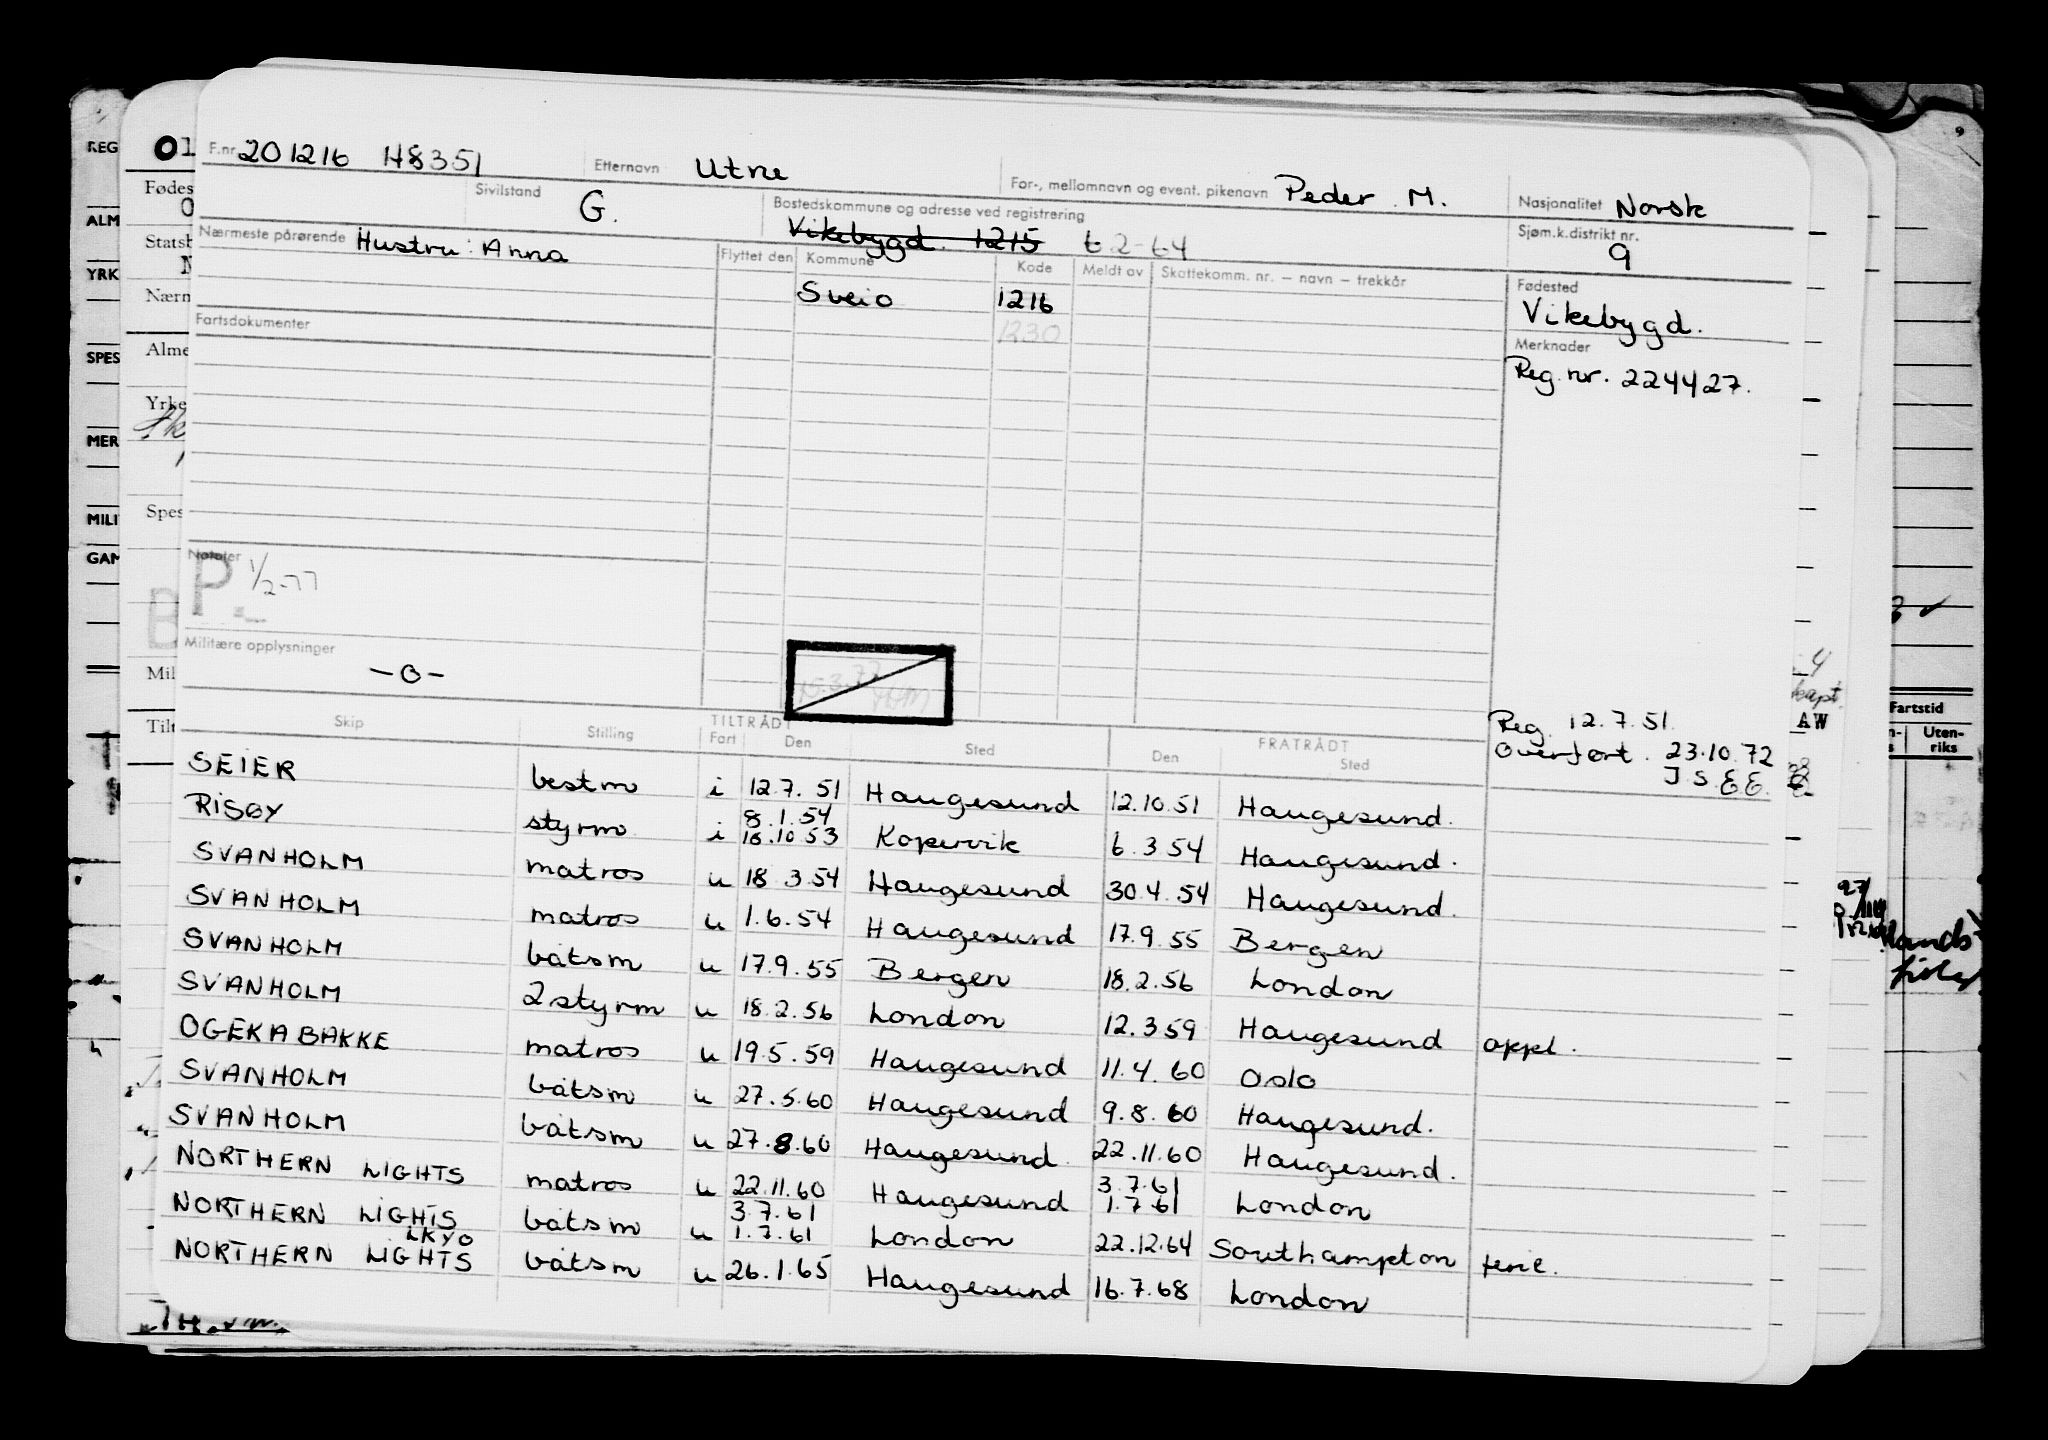 F.nr. 201216 H8351 Etternavn Utne For-, mellomnavn og event. pikenavn Peder M. Nasjonalitet Norsk
Sivilstand G. Bostedskommune og adresse ved registrering Vikebygd. 1215 6 2-64 Sjøm.k.distrikt nr. 9
Nærmeste pårørende Hustru: Anna
Flyttet den Kommune Kode Meldt av Skattekomm. nr. – navn – trekkår Fødested
Sveio 1216 Vikebygd.
1230
Fartsdokumenter
Merknader
Reg. nr. 224427.
Notater
P 1/2-77
Militære opplysninger
-o-
Reg. 12.7.51.
Overført. 23.10.72
J.S. E.E.
Skip Stilling TILTRÅDT Fart Den Sted FRATRÅDT Den Sted
SEIER bestm i 12.7.51 Haugesund 12.10.51 Haugesund.
8.1.54
RISØY styrm i 18.10.53 Kopervik 6.3.54 Haugesund.
SVANHOLM matros u 18.3.54 Haugesund 30.4.54 Haugesund.
SVANHOLM matros u 1.6.54 Haugesund 17.9.55 Bergen
SVANHOLM båtsm u 17.9.55 Bergen 18.2.56 London
SVANHOLM 2styrm u 18.2.56 London 12.3.59 Haugesund oppl.
OGEKA BAKKE matros u 19.5.59 Haugesund 11.4.60 Oslo
SVANHOLM båtsm u 27.5.60 Haugesund 9.8.60 Haugesund.
SVANHOLM båtsm u 27.8.60 Haugesund. 22.11.60 Haugesund.
NORTHERN LIGHTS matros u 22.11.60 Haugesund 3.7.61 1.7.61 London
3.7.61
NORTHERN LIGHTS båtsm u 1.7.61 London 22.12.64 Southampton ferie.
LKYO
NORTHERN LIGHTS båtsm u 26.1.65 Haugesund 16.7.68 London
REG
ALM
YRK
SPES
MER
MILI
GAM
Fødes
Statsb
Nærm
Alme
Yrke
Spes
Mil
Tilt
AW
Fartstid
Uten-
riks